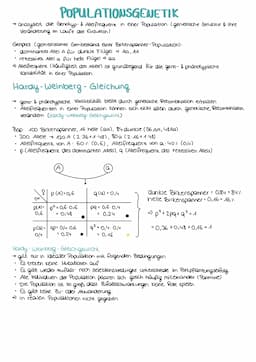 POPULATIONSGENETIK
→ analysiert die Genotyp- & Allelfrequenz in einer Population (genetische Struktur & ihre
Veränderung im Laufe der Evolution)
Genpool (gemeinsamer Genbestand einer Birkenspanner-Population):
→ dominantes Allel A für dunkle Flügel → AA, Aa
→ rezessives Allel a für helle Flügel → aa
→ Allelfrequenz (Häufigkeit der Allele) ist grundlegend für die geno- & phänotypische
Variabilität in einer Population
Hardy-Weinberg-Gleichung
→ geno- & phänotypische Variabilität bleibt durch genetische Rekombination erhalten
→ Allelfrequenzen in einer Population können sich nicht allein durch genetische Rekombination
verändern (Hardy-Weinberg-Gleichgewicht)
Bsp.: 100 Birkenspanner, 16 helle (aa), 84 dunkle (36 AA, 48 Aa)
→ 200 Allele → 120 A (2·36+1·48), 80 a (2·16+1·48)
→ Allelfrequenz von A = 60% (0,6), Allelfrequenz von a = 40% (0,4)
→ p (Allelfrequenz des dominanten Allels), q (Allelfrequenz des rezessiven Allels)
A
a
p(A)=0,6
q(a)=0,4
p(A)=
0,6
p²=0,6·0,6
=0,36
pq=0,6·0,4
=0,24
q(a)=
0,4
pq=0,4·0,6
=0,24
q²=0,4·0,4
=0,16
dunkle Birkenspanner =
helle Birkenspanner = 0,16 = 16%
→ p²+2pq+q²=1
→ 0,36+0,48+0,16=1
Hardy-Weinberg-Gleichgewicht
→ gilt nur in idealer Population mit folgenden Bedingungen
→ Es treten keine Mutationen auf
→ Es gibt weder
→ Alle Individuen der Population paaren sich gleich häufig miteinander (Panmixie)
→ Die Population ist so groß, dass Zufallsschwankungen keine Rolle spielen
→ Es gibt keine Zu- oder Abwanderung
→ in realen Populationen nicht gegeben